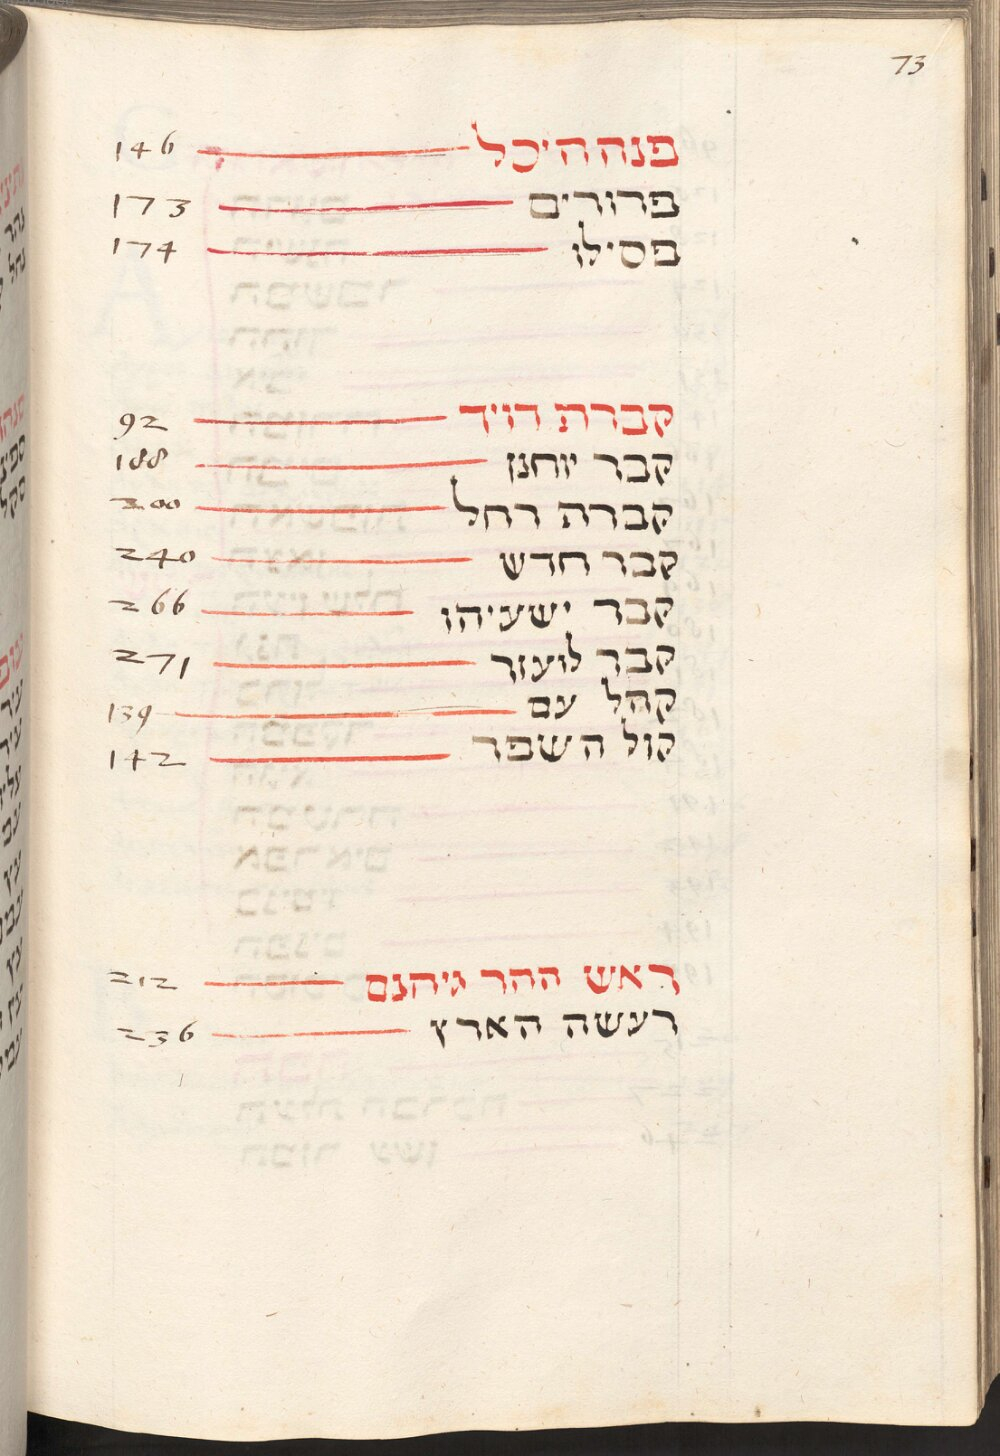 73
פנההיכל 146
פרורים 173
פסילו 174
קברת דויד 92
קבר יוחנן 188
קברה רחל 200
קבר חדש 240
קבר ישעיהו 266
קבר לועזר 271
קהל עם 139
קול השפר 142
ראש ההר גיהנם 212
רעשה הארץ 236